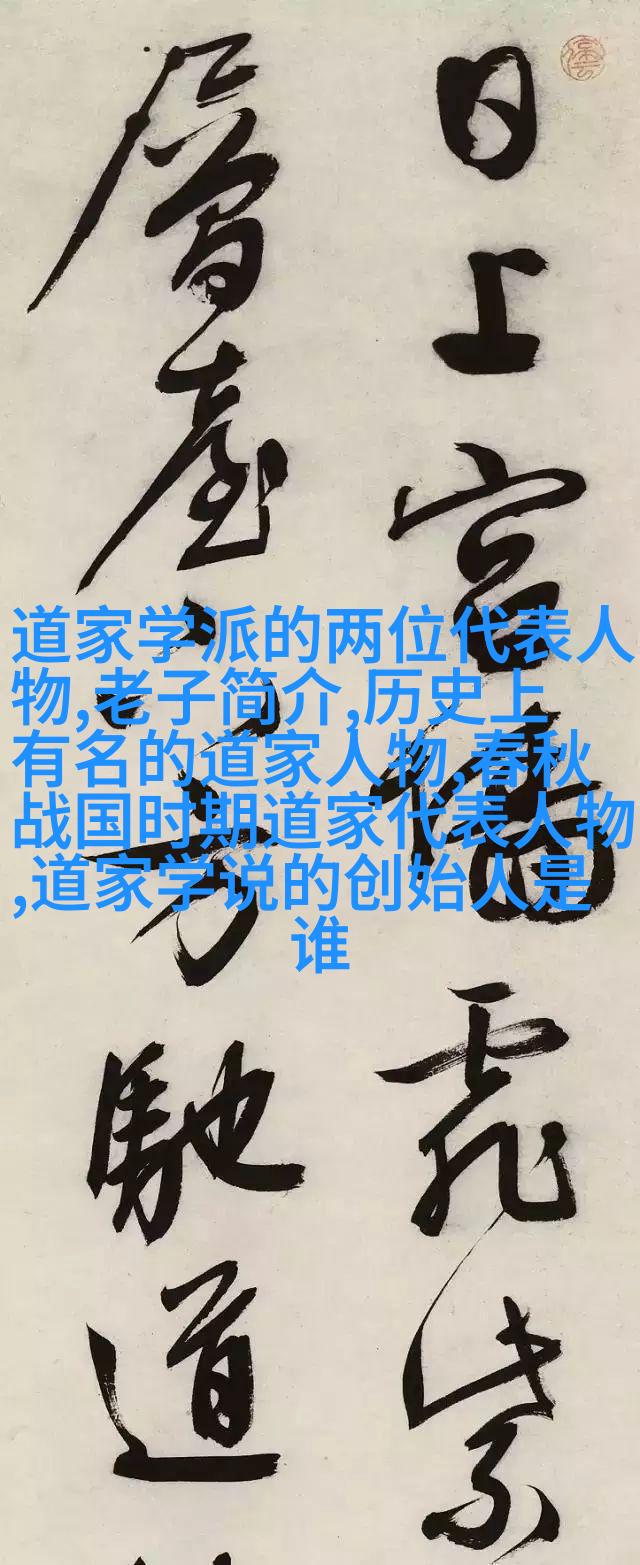 日上宮墻飛紫
層臺下方馳道
道家学派的两位代表人
物,老子简介,历史上
有名的道家人物,春秋
战国时期道家代表人物
,道家学说的创始人是
谁